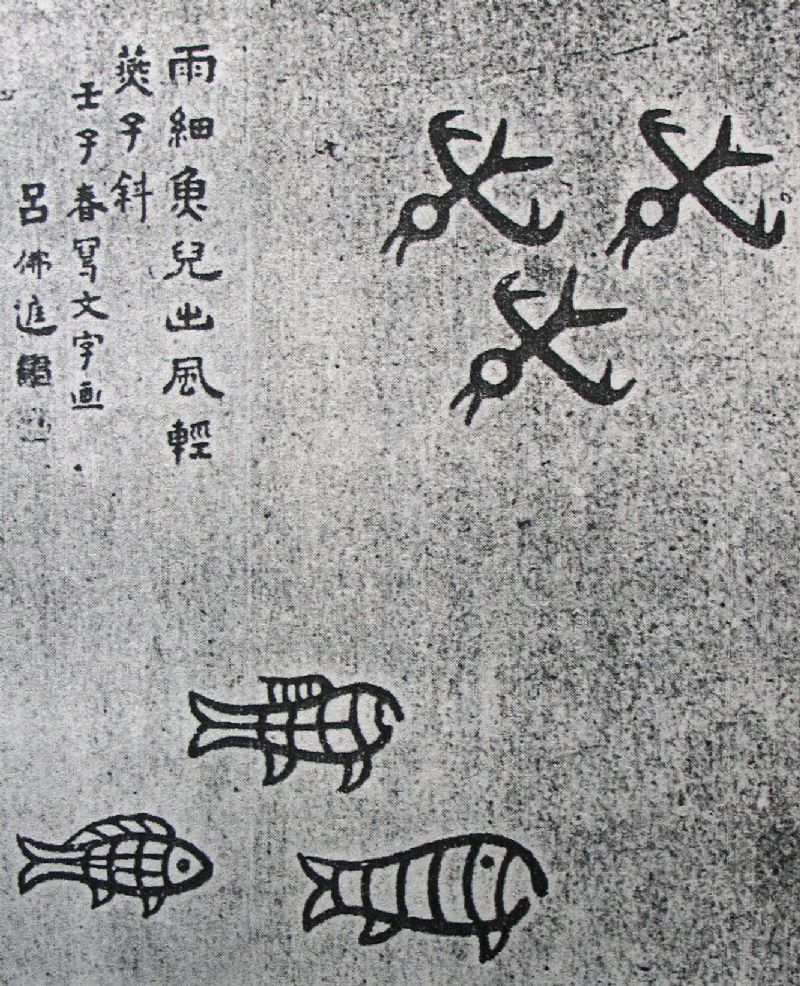 雨細魚兒出風輕
燕子斜
壬子春寫文字画
呂佛庭